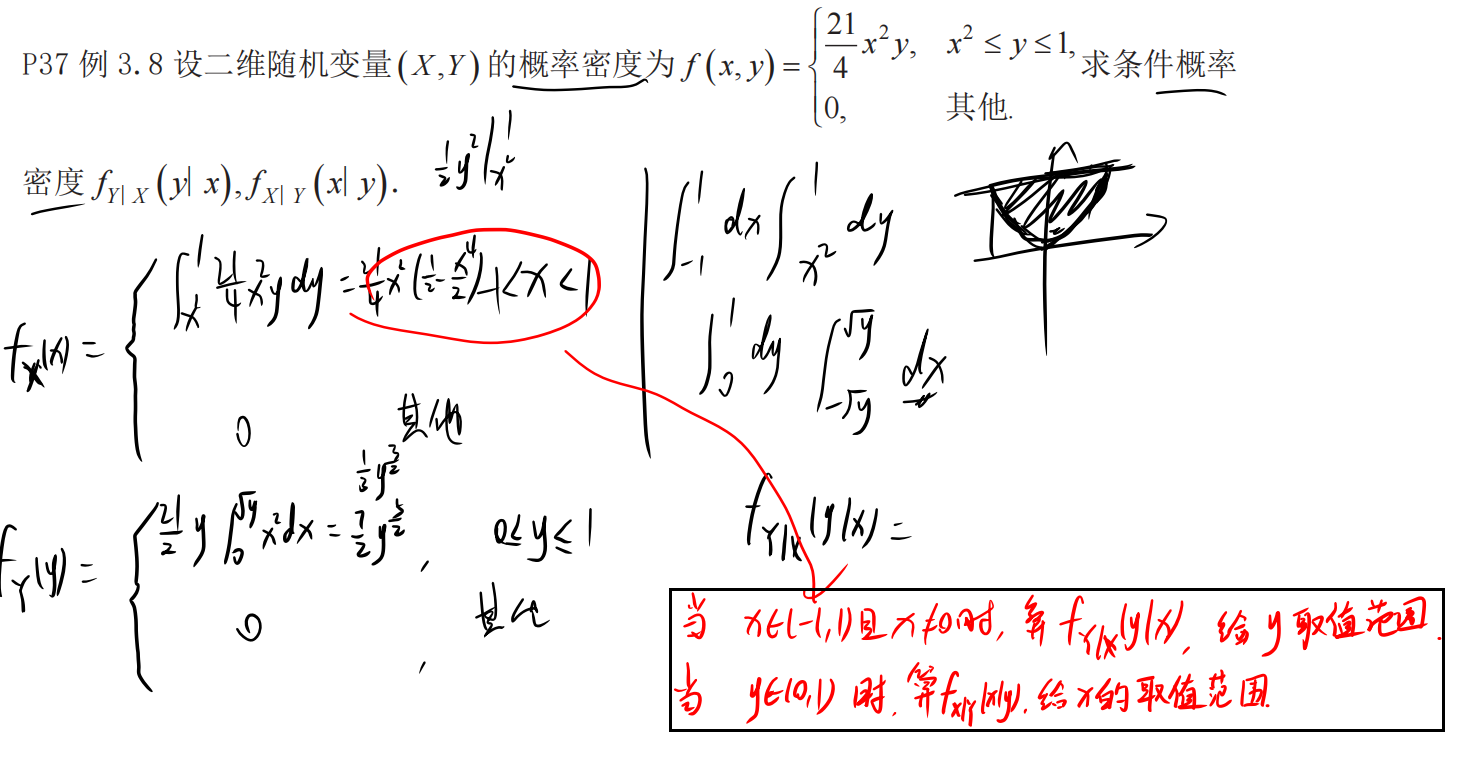 P37 例 3.8 设二维随机变量(X,Y)的概率密度为 f(x,y) = { 21/4 x²y, x² ≤ y ≤ 1, 0, 其他. 求条件概率
密度 f_{Y|X}(y|x), f_{X|Y}(x|y).
1/2 y² |_{x²}^{1}
f_X(x) = { ∫_{x²}^{1} 21/4 x²y dy = 21/4 x² (1/2 - x⁴/2) -1<x<1
0 其他
1/3 y^{3/2}
f_Y(y) = { 21/2 y ∫_0^{√y} x² dx = 7/2 y^{5/2}, 0≤y≤1
0, 其他
∫_{-1}^{1} dx ∫_{x²}^{1} dy
∫_0^1 dy ∫_{-√y}^{√y} dx
f_{Y|X}(y|x) =
当 x∈(-1,1)且x≠0时, 算 f_{Y|X}(y|x), 给 y 取值范围.
当 y∈(0,1) 时, 算 f_{X|Y}(x|y), 给 x 的取值范围.